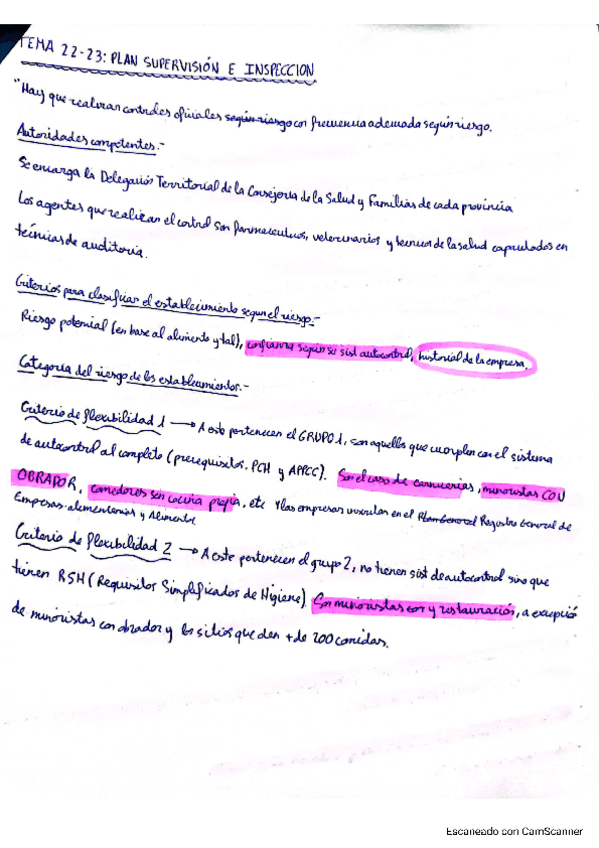 TEMA 22-23: PLAN SUPERVISIÓN E INSPECCION
"Hay que realizar controles oficiales según riesgo con frecuencia adecuada según riesgo.
Autoridades competentes.-
Se encarga la Delegación Territorial de la Consejería de la Salud y Familias de cada provincia
Los agentes que realizan el control son farmaceuticos, veterinarios y tecnicos de la salud capacitados en
técnicas de auditoría.
Criterios para clasificar el establecimiento segun el riesgo.-
Riesgo potencial (en base al alimento y tal), confianza según su sist autocontrol, historial de la empresa.
Categoría del riesgo de los establecimientos.-
Criterio de flexibilidad 1 → A este pertenecen el GRUPO 1, son aquellos que cumplen con el sistema
de autocontrol al completo (prerrequisitos. PCH y APPCC). Son el caso de carnicerías, minoristas CON
OBRADOR, comedores sin cocina propia, etc y las empresas inscritas en el Plan General Registro General de
Empresas alimentarias y Alimentos
Criterio de flexibilidad 2 → A este pertenecen el grupo 2, no tienen sist de autocontrol sino que
tienen RSH (Requisitos Simplificados de Higiene) Son minoristas y restauración, a excepció
de minoristas con obrador y los sitios que den + de 200 comidas.
Escaneado con CamScanner